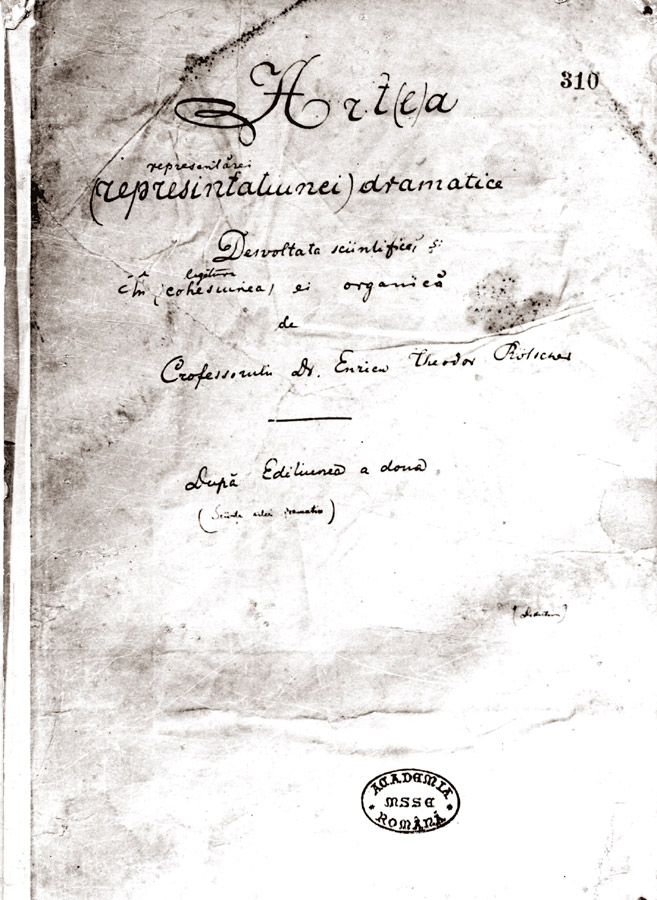 310
Art(e)a
representărei
(represintatiunei) dramatice
Desvoltata sciintifică, și
legătura
în (cohesiunea) ei organică
de
Professorulu Dr. Enricu Theodor Rötscher
După Editiunea a doua
(Sciința artei dramatice)
ACADEMIA
MSSE
ROMÂNĂ